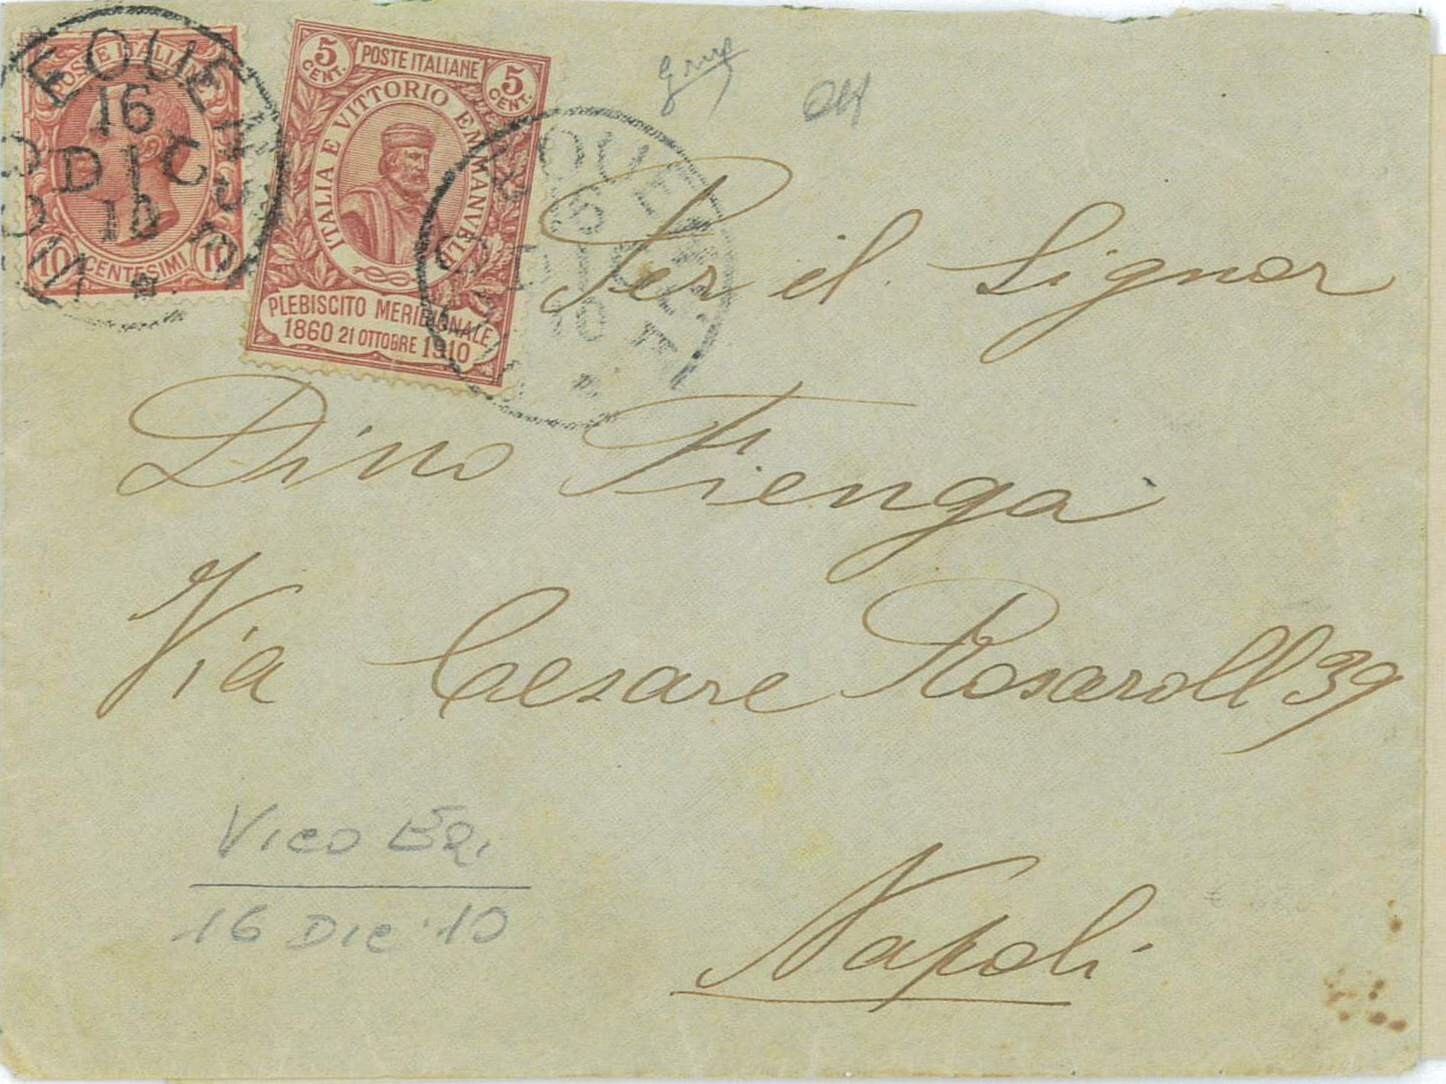 POSTE ITALIANE
10 CENTESIMI 10
16
DIC
10
5 CENT. POSTE ITALIANE 5 CENT.
ITALIA E VITTORIO EMMANVELE
PLEBISCITO MERIDIONALE
1860 21 OTTOBRE 1910
Per il Signor
Dino Fienga
Via Cesare Rosaroll 39
Napoli
Vico EQ.
16 Dic 10